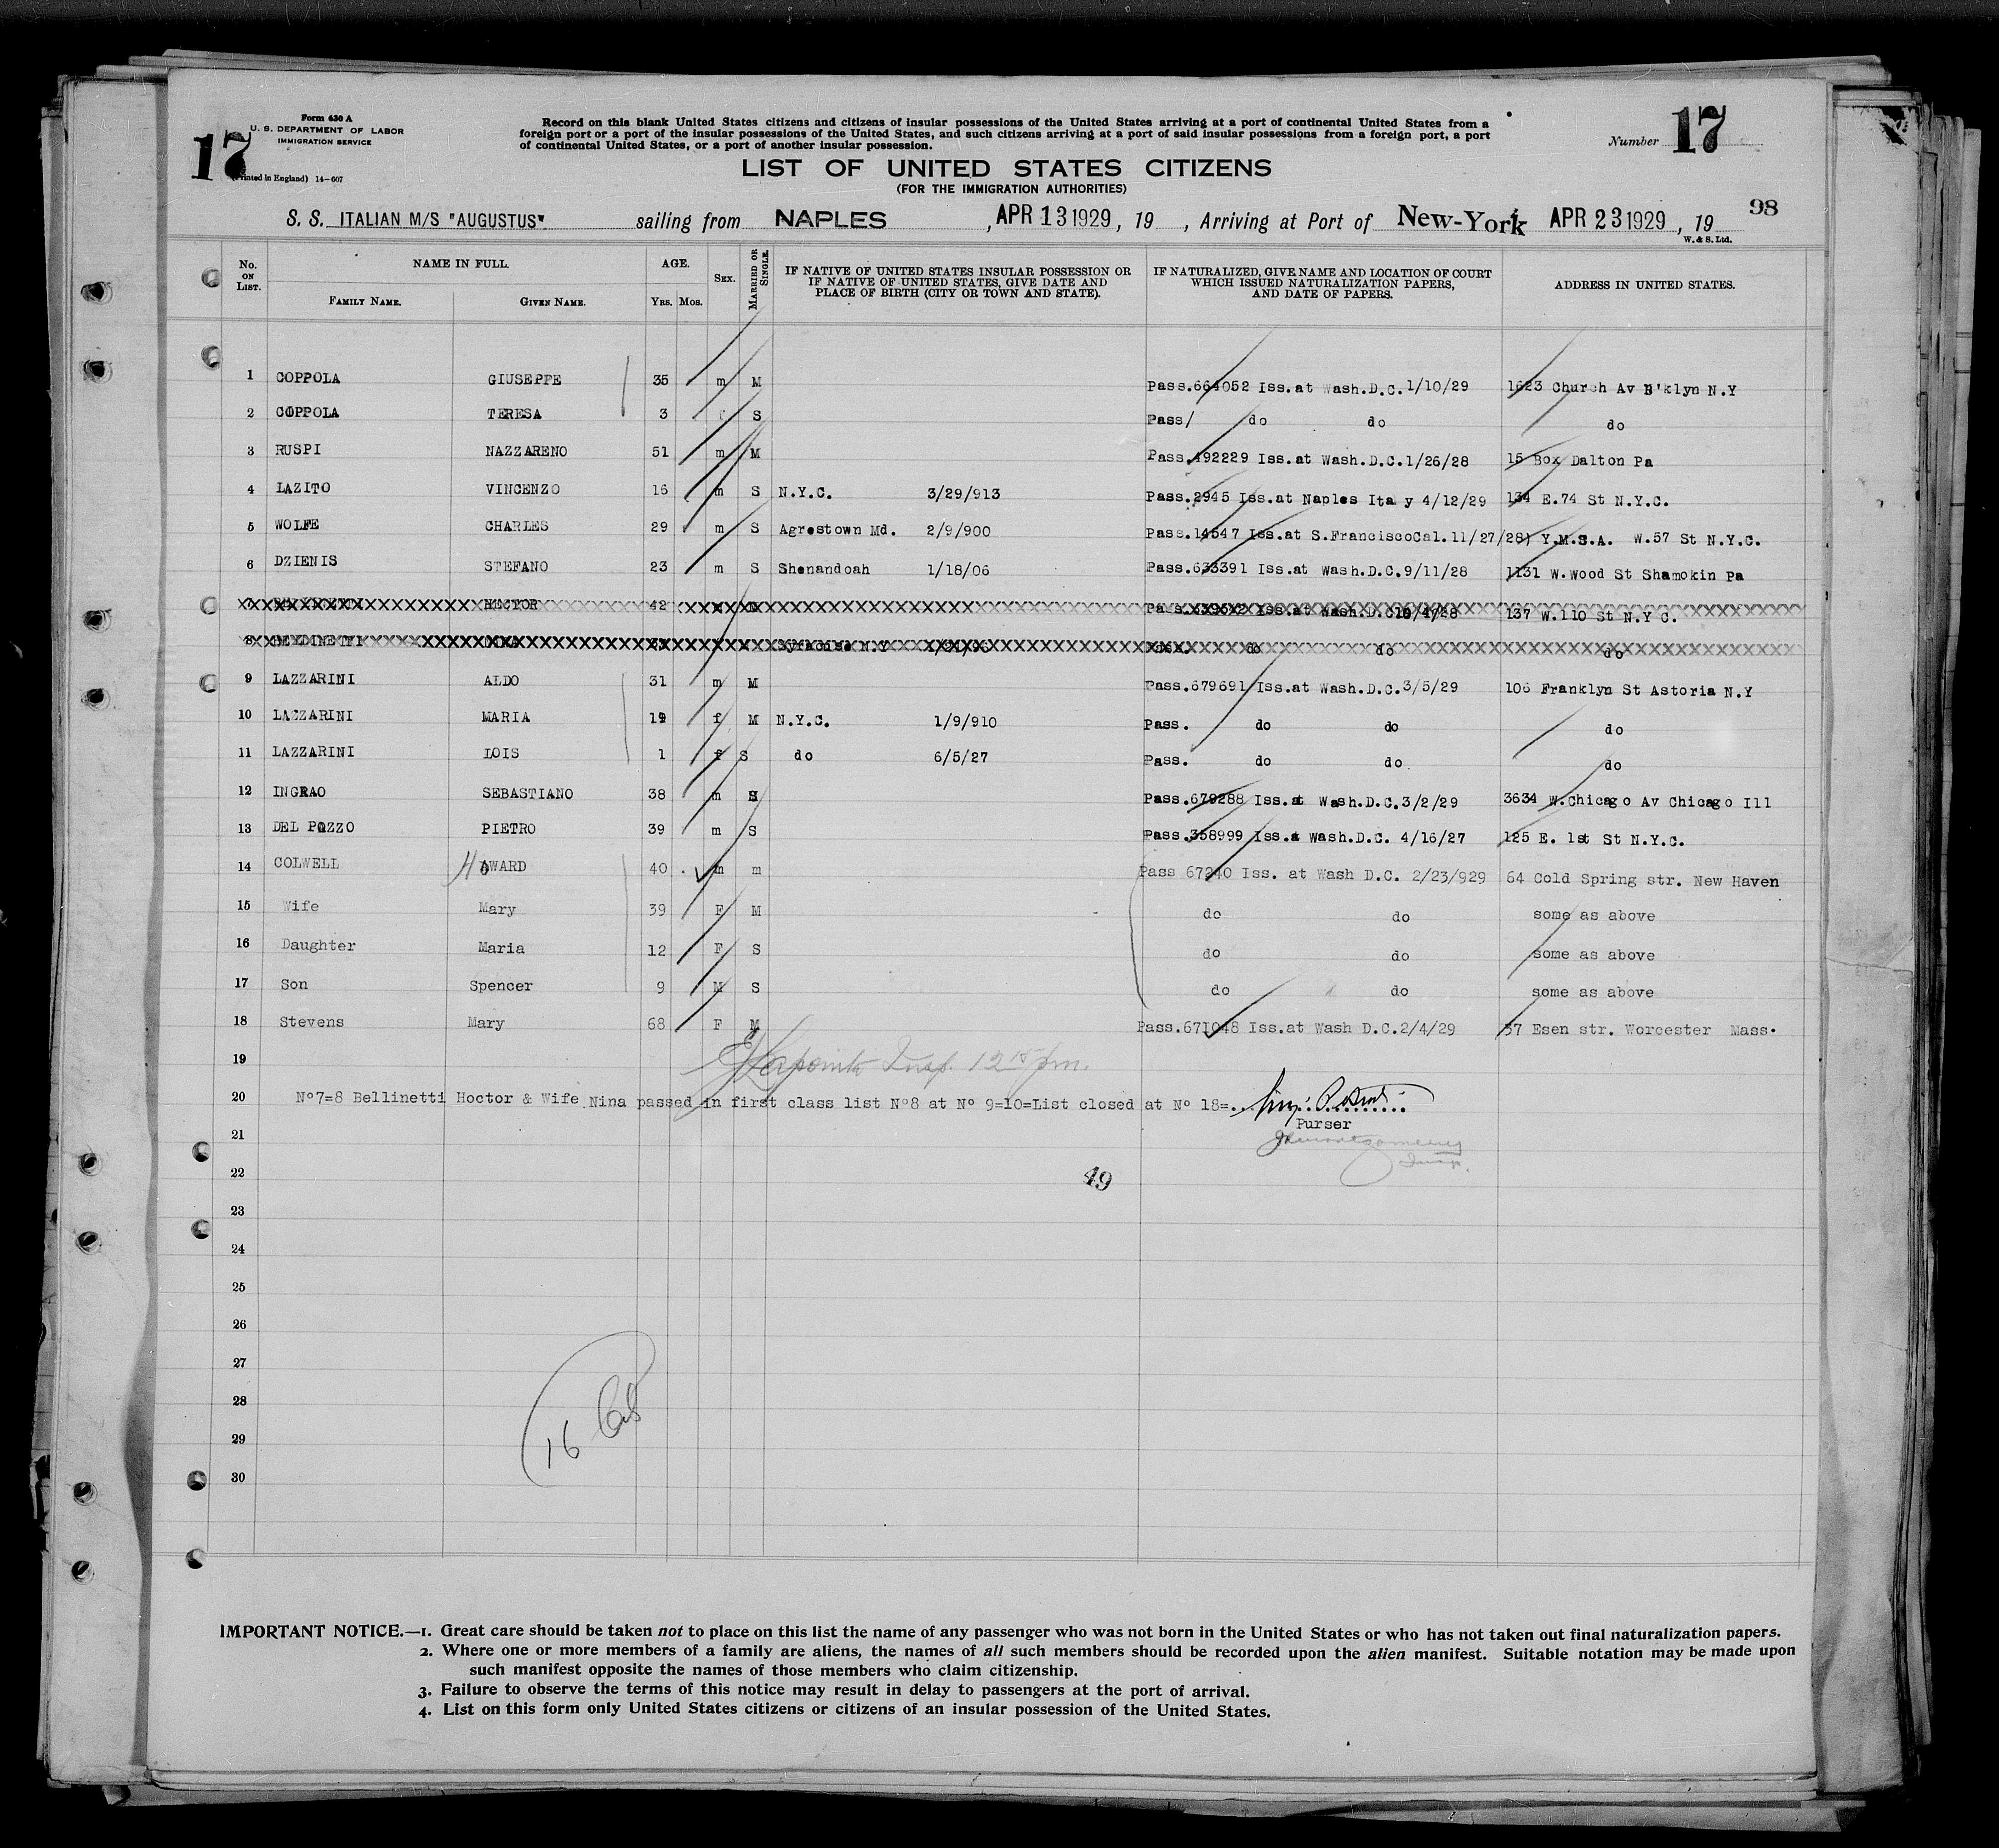 17
Form 630 A
U. S. DEPARTMENT OF LABOR
IMMIGRATION SERVICE
(Printed in England) 14-607
Record on this blank United States citizens and citizens of insular possessions of the United States arriving at a port of continental United States from a
foreign port or a port of the insular possessions of the United States, and such citizens arriving at a port of said insular possessions from a foreign port, a port
of continental United States, or a port of another insular possession.
LIST OF UNITED STATES CITIZENS
(FOR THE IMMIGRATION AUTHORITIES)
Number 17
S. S. ITALIAN M/S "AUGUSTUS" sailing from NAPLES, APR 13 1929, 19 , Arriving at Port of New-York APR 23 1929, 19
98
W. & S. Ltd.
No. ON LIST. NAME IN FULL. AGE. SEX. MARRIED OR SINGLE. IF NATIVE OF UNITED STATES INSULAR POSSESSION OR IF NATIVE OF UNITED STATES, GIVE DATE AND PLACE OF BIRTH (CITY OR TOWN AND STATE). IF NATURALIZED, GIVE NAME AND LOCATION OF COURT WHICH ISSUED NATURALIZATION PAPERS, AND DATE OF PAPERS. ADDRESS IN UNITED STATES.
FAMILY NAME. GIVEN NAME. YRS. MOS.
1 COPPOLA GIUSEPPE 35 m M Pass.664052 Iss.at Wash.D.C.1/10/29 1623 Church Av B'klyn N.Y
2 COPPOLA TERESA 3 S Pass/ do do do
3 RUSPI NAZZARENO 51 m M Pass.492229 Iss.at Wash.D.C.1/26/28 15 Box Dalton Pa
4 LAZITO VINCENZO 16 m S N.Y.C. 3/29/913 Pass.2945 Iss.at Naples Ita y 4/12/29 134 E.74 St N.Y.C.
5 WOLFE CHARLES 29 m S Agrestown Md. 2/9/900 Pass.14547 Iss.at S.FranciscoCal.11/27/28) Y.M.S.A. W.57 St N.Y.C.
6 DZIENIS STEFANO 23 m S Shenandoah 1/18/06 Pass.633391 Iss.at Wash.D.C.9/11/28 1131 W.Wood St Shamokin Pa
7 HECTOR 42 Iss.at Wash.D.C. 137 W.110 St N.Y C.
8 Syracuse N.Y do do do
9 LAZZARINI ALDO 31 m M Pass.679691 Iss.at Wash.D.C.3/5/29 106 Franklyn St Astoria N.Y
10 LAZZARINI MARIA 19 f M N.Y.C. 1/9/910 Pass. do do do
11 LAZZARINI LOIS 1 f S do 6/5/27 Pass. do do do
12 INGRAO SEBASTIANO 38 m Pass.679288 Iss.at Wash.D.C.3/2/29 3634 W.Chicago Av Chicago Ill
13 DEL POZZO PIETRO 39 m S Pass.358999 Iss.a Wash.D.C. 4/16/27 125 E. 1st St N.Y.C.
14 COLWELL HOWARD 40 m m Pass 67240 Iss. at Wash D.C. 2/23/929 64 Cold Spring str. New Haven
15 Wife Mary 39 F M do do some as above
16 Daughter Maria 12 F S do do some as above
17 Son Spencer 9 M S do do some as above
18 Stevens Mary 68 F M Pass.671048 Iss.at Wash D.C.2/4/29 57 Esen str. Worcester Mass.
19 Lapointe Insp. 12 15 pm.
20 Nº7=8 Bellinetti Hoctor & Wife Nina passed in first class list Nº8 at Nº 9=10=List closed at Nº 18=
Purser
21 Montgomery
Insp.
22 49
23
24
25
26
27
28
16
29
30
IMPORTANT NOTICE.—1. Great care should be taken not to place on this list the name of any passenger who was not born in the United States or who has not taken out final naturalization papers.
2. Where one or more members of a family are aliens, the names of all such members should be recorded upon the alien manifest. Suitable notation may be made upon
such manifest opposite the names of those members who claim citizenship.
3. Failure to observe the terms of this notice may result in delay to passengers at the port of arrival.
4. List on this form only United States citizens or citizens of an insular possession of the United States.